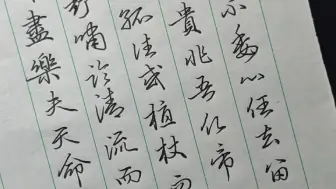 不委心任去留
貴非吾願帝
孤往或植杖而
舒嘯臨清流而
盡樂夫天命